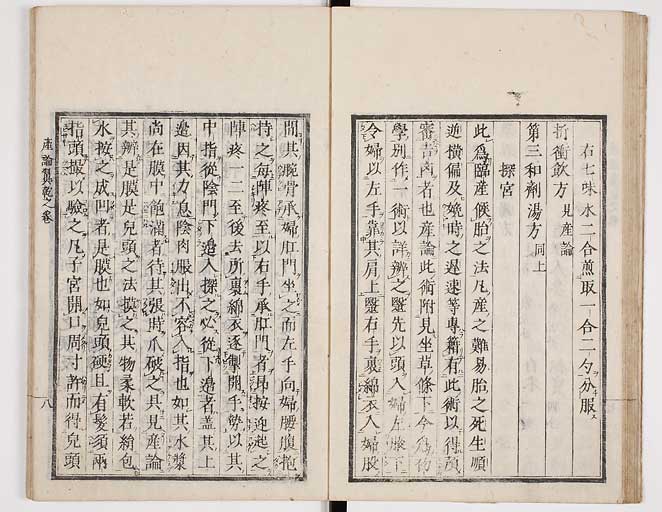 右七味水二合煎取一合二勺分服
折衝飲方見産論
第三和劑湯方同上
探宮
此爲臨産候胎之法凡産之難易胎之死生順
逆横偏及娩時之遲速等專籍有此術以得預
審吉凶者也産論此術附見坐草條下今爲初
學別作一術以詳辨之蹩先以頭入婦左腋下
令婦以左手靠其肩上蹩右手裹綿衣入婦股
間其腕骨承婦肛門坐之而左手向婦腰腹抱
持之毎陣疼至以右手承肛門者昂按迎起之
陣疼一二至後去所裹綿衣逐掣開手勢以其
中指從陰門下邉入探之必從下邉者蓋其上
邉因其力息陰肉脹出不容入指也如其水漿
尚在膜中飽滿者待其張時爪破之具見産論
其辨是膜是兒頭之法摸之其物柔軟若綃包
水按之成凹者是膜也如兒頭硬且有髮須兩
指頭撮以驗之凡子宮開口周寸許而得兒頭
産論翼乾之卷
八